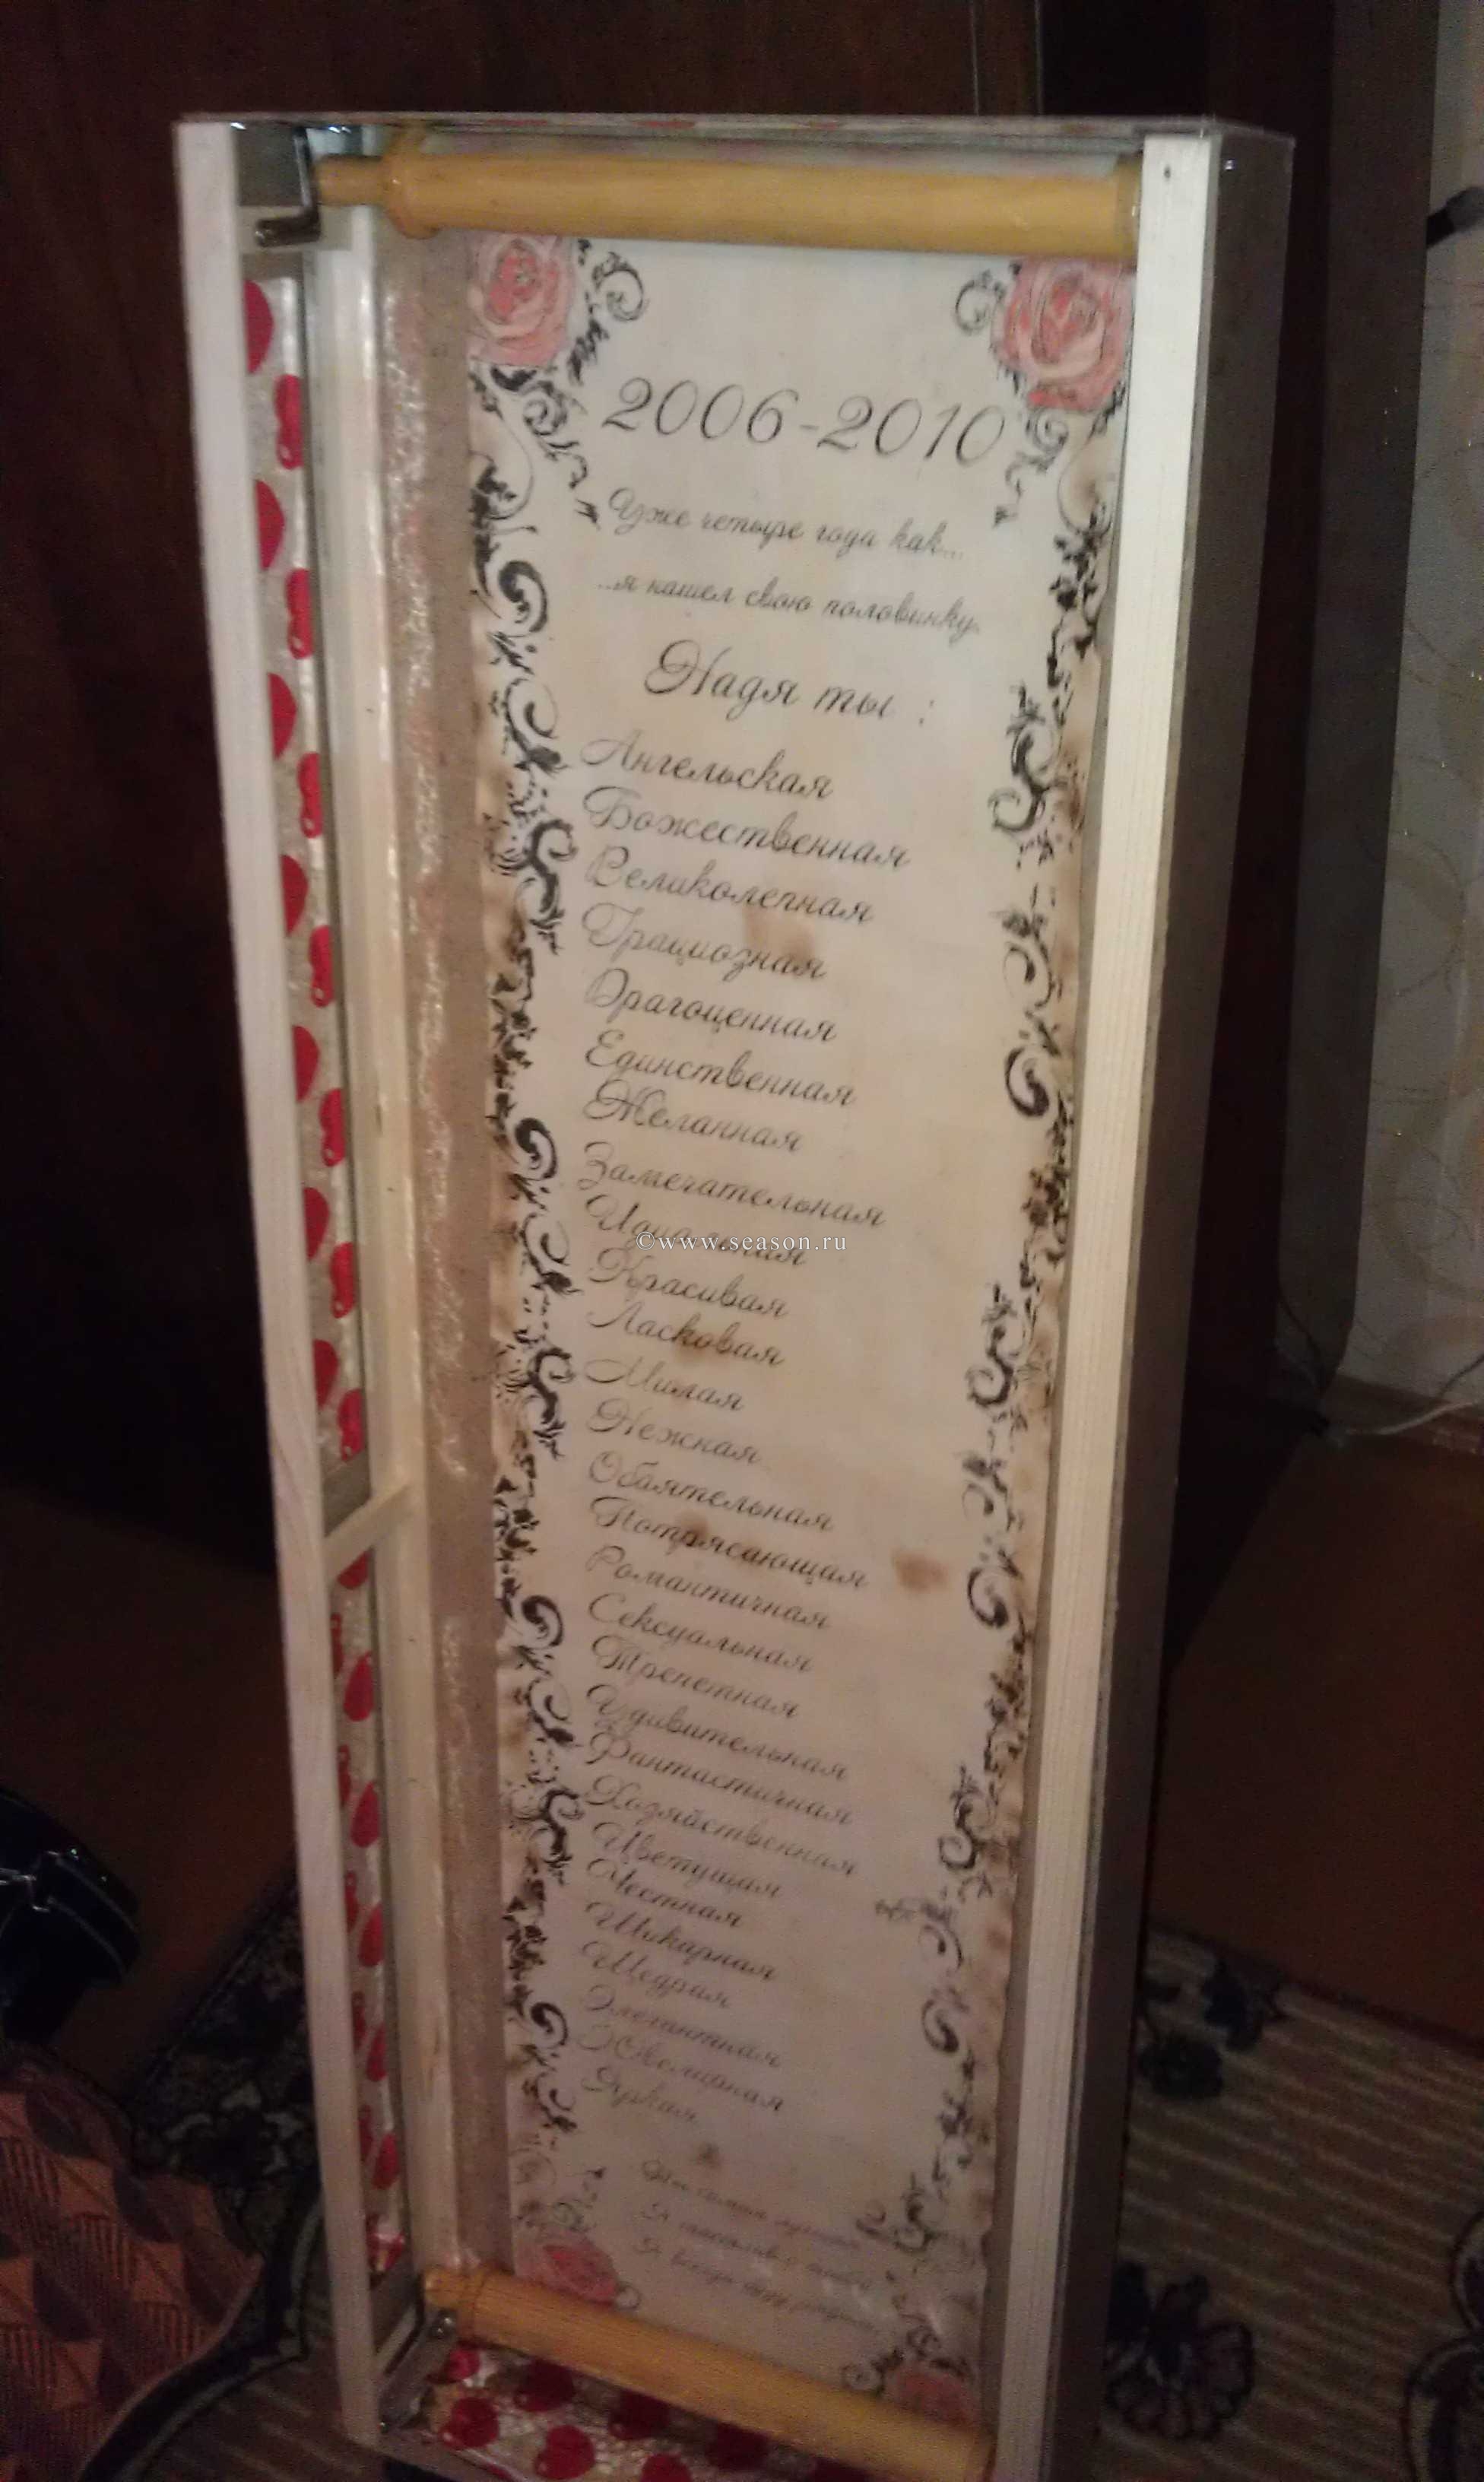 2006-2010
Уже четыре года как...
...я нашел свою половинку.
Надя ты :
Ангельская
Божественная
Великолепная
Грациозная
Драгоценная
Единственная
Желанная
Замечательная
Идеальная
©www.season.ru
Красивая
Ласковая
Милая
Нежная
Обаятельная
Потрясающая
Романтичная
Сексуальная
Трепетная
Удивительная
Фантастичная
Хозяйственная
Цветущая
Честная
Шикарная
Щедрая
Элегантная
Ювелирная
Яркая
самая
Я счастлив с тобой
Я всегда буду рядом